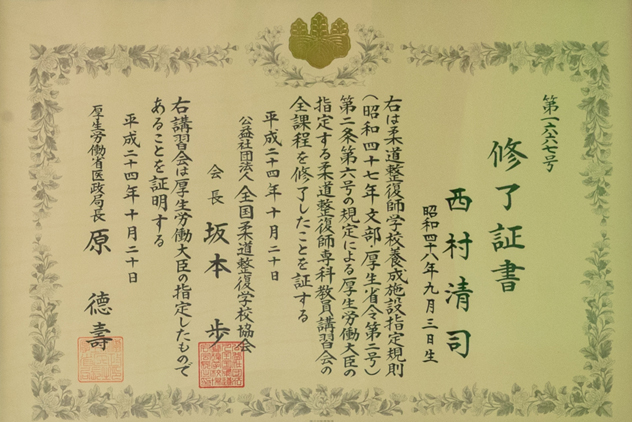 第一六六七号
修了証書
西村清司
昭和四十八年九月三日生
右は柔道整復師学校養成施設指定規則
(昭和四十七年文部・厚生省令第二号)
第二条第六号の規定による厚生労働大臣の
指定する柔道整復師専科教員講習会の
全課程を修了したことを証する
平成二十四年十月二十日
公益社団法人 全国柔道整復学校協会
会長 坂本 歩
右講習会は厚生労働大臣の指定したもので
あることを証明する
平成二十四年十月二十日
厚生労働省医政局長 原 德壽